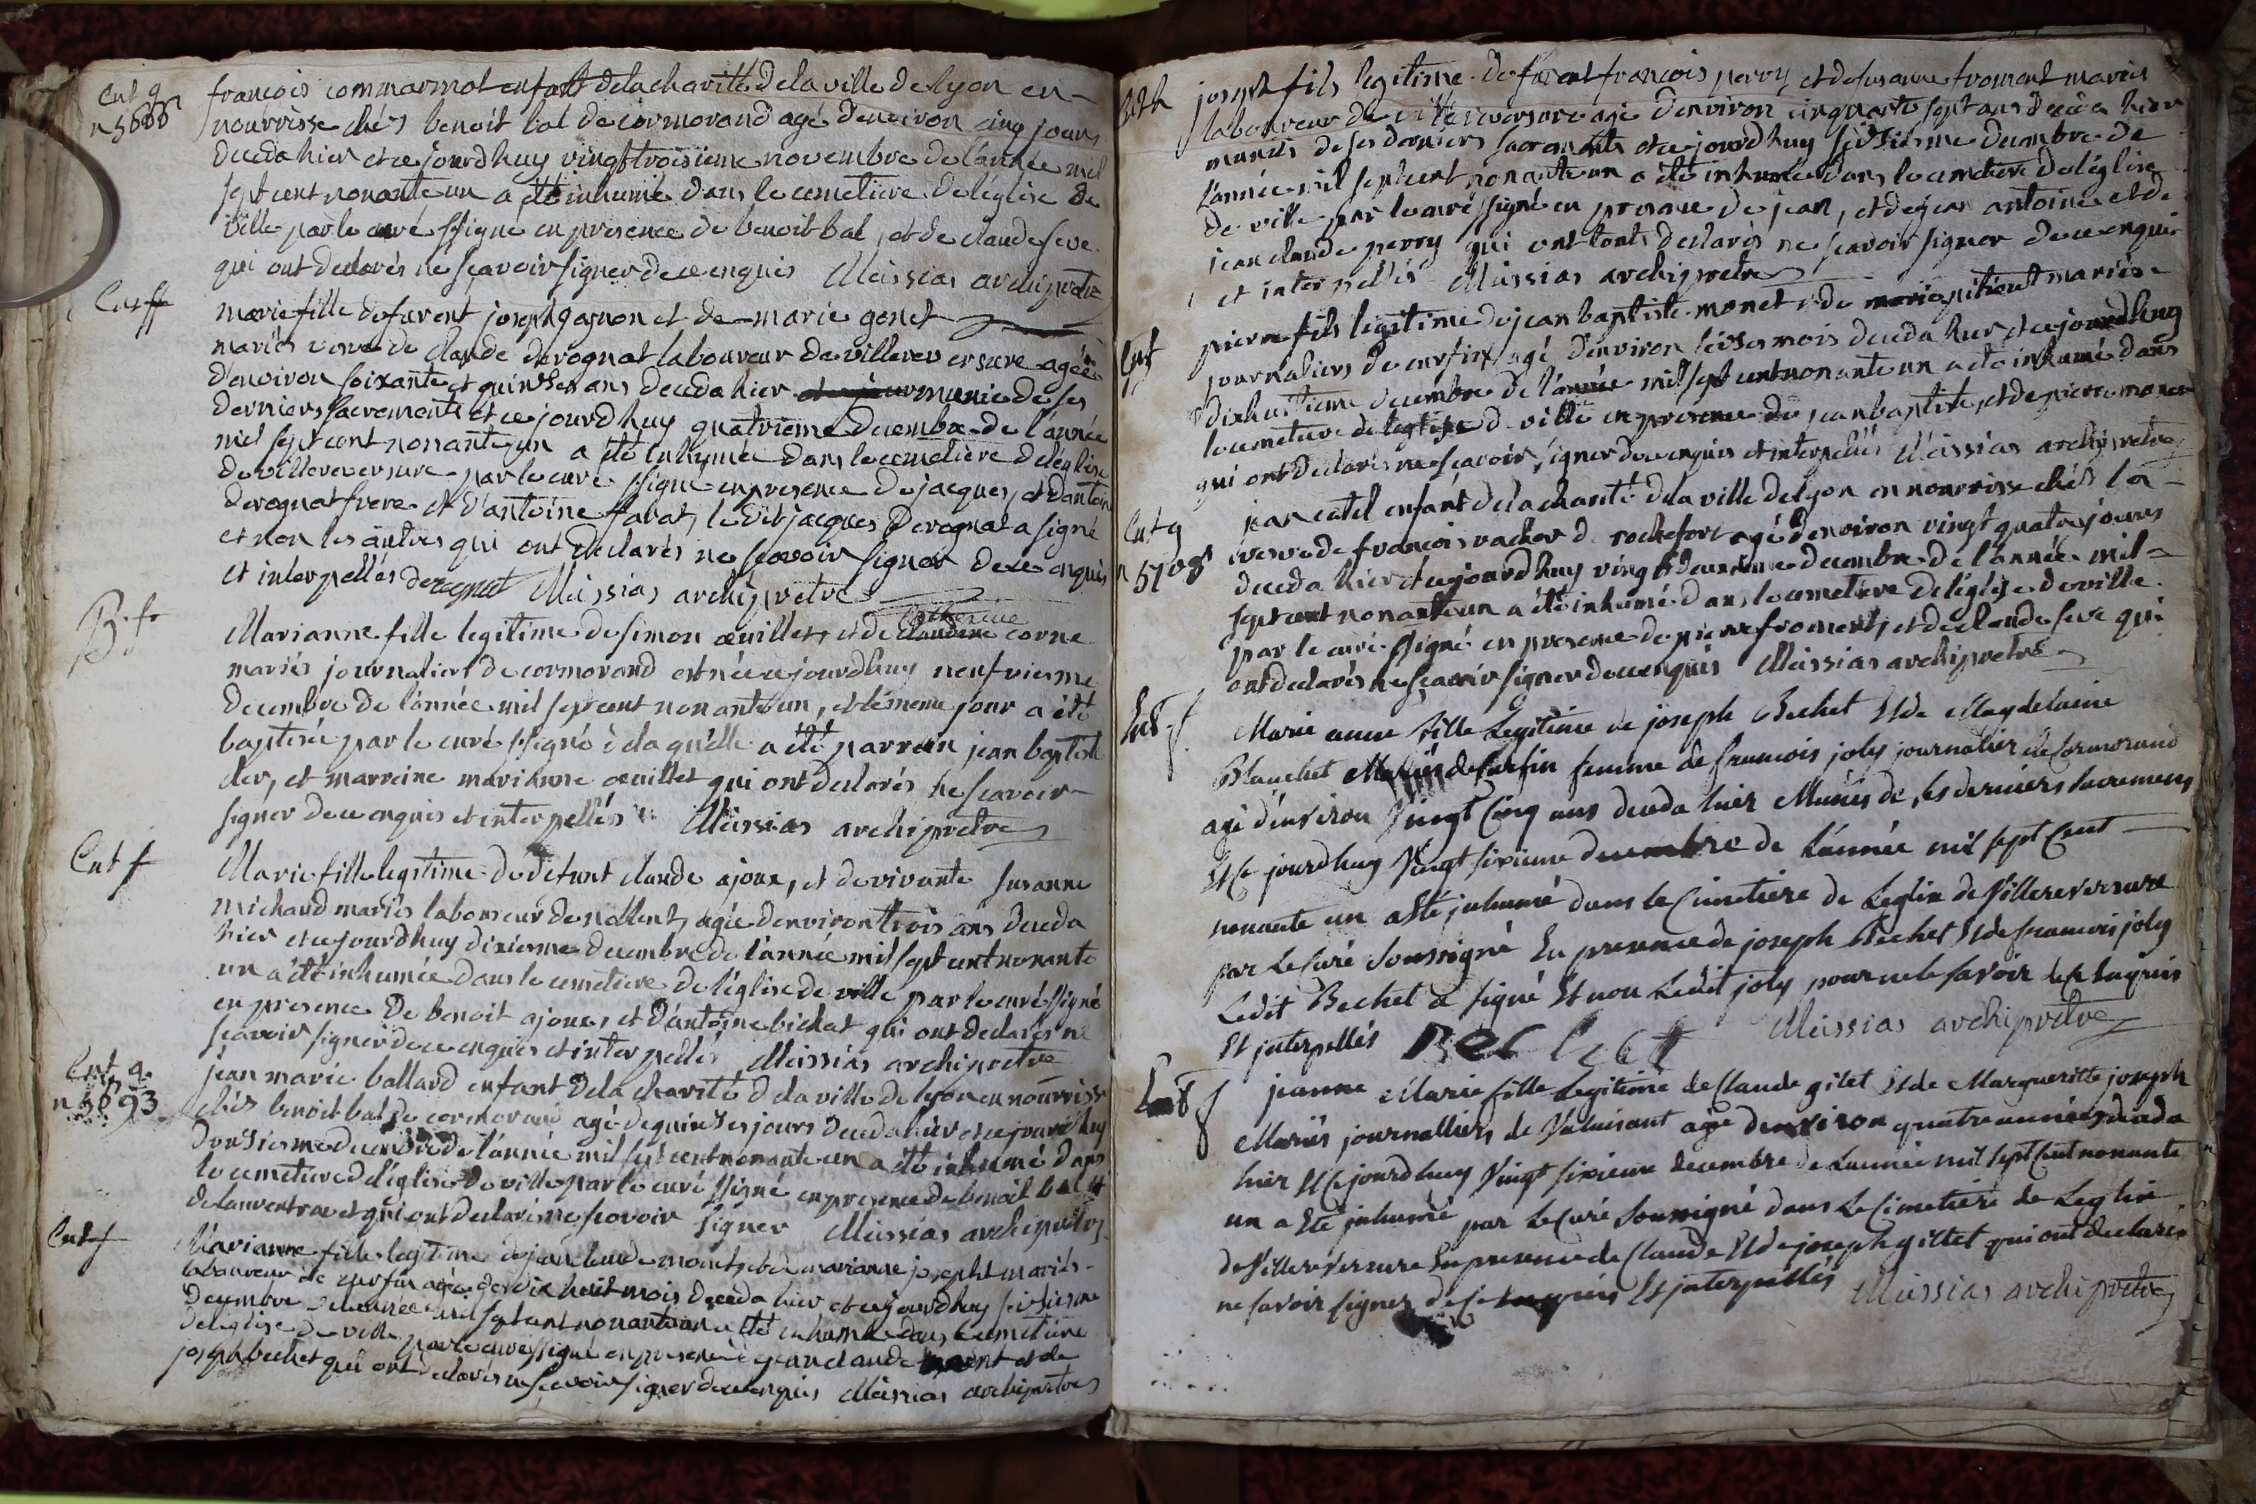 Ent g
n 5666
françois commarmot enfant de la charitté de la ville de lyon en-
nourrisse chés benoit bal de cormorand agé denviron cinq jours
deceda hier et ce jourdhuy vingt troisieme novembre de l'année mil
sept cent nonante un a été inhumé dans le cemetiere de l'église de
ville par le curé ssigné en presence de benoit bal, et de claude seve
qui ont declarés ne sçavoir signer de ce enquis Meissias archiprêtre
Ent ff
marie fille de furent joseph gagnon et de marie gonet
mariés veuve de claude derognat laboureur de villereversure agée
denviron soixante et quinses ans deceda hier munie de ses
derniers sacrements et ce jourdhuy quatrieme decembre de l'année
mil sept cent nonante un a été inhumée dans le cemetiere de léglise
de villereversure par le curé ssigné en presence de jacques, et dantoine
derognat frere et d'antoine le dit jacques derognat a signé
et non les autres qui ont declarés ne sçavoir signer de ce enquis
et interpellés derognat Meissias archiprêtre
B. f.
catherine
Marianne fille legitime de simon œuillet, et de claudine corne
mariés journaliers de cormorand est née ce jourdhuy neufvieme
decembre de l'année mil sept cent nonante un, et le meme jour a été
baptisée par le curé ssigné à laquelle a été parrein jean baptiste
der, et marreine marianne œuillet qui ont declarés ne sçavoir
signer de ce enquis et interpellés Meissias archiprêtre
Ent f
Marie fille legitime de defunt claude ajoux, et de vivante susanne
michaud mariés laboureur de noblens agée denviron trois ans deceda
hier et ce jourdhuy dixieme decembre de l'année mil sept cent nonante
un a été inhumée dans le cemetiere de l'église de ville par le curé ssigné
en presence de benoit ajoux, et d'antoine bichat qui ont declarés ne
sçavoir signer de ce enquis et interpellés Meissias archiprêtre
Ent g.
n 5693
jean marie ballard enfant de la charité de la ville de lyon en nourrisse
chés benoit bal de cormorand agé de quinses jours deceda hier et ce jourdhuy
dousieme decembre de l'année mil sept cent nonante un a été inhumé dans
le cemetiere de l'église de ville par le curé ssigné en presence de benoit bal et
qui ont declarés ne sçavoir signer Meissias archiprêtre
Ent f
Marianne fille legitime de jean claude monet, et de marianne josepht mariés
laboureur de curfin agée de dix huit mois deceda hier et ce jourdhuy seisieme
decembre de l'année mil sept cent nonante un a été inhumée dans le cemetiere
de l'église de ville par le curé ssigné en presence de jean claude et de
joseph bechet qui ont declarés ne sçavoir signer de ce enquis Meissias archiprêtre
joseph fils legitime de furent françois perry et de susanne froment mariés
laboureur de villereversure agé denviron cinquante sept ans deceda hier
munis de ses derniers sacrements et ce jourdhuy seisieme decembre de
l'année mil sept cent nonante un a été inhumé dans le cemetiere de l'église
de ville par le curé ssigné en presence de jean, et de jean antoine et de
jean claude perry qui ont touts declarés ne sçavoir signer de ce enquis
et interpellés Meissias archiprêtre
Ent
pierre fils legitime de jean baptiste monet et de marie mariés
journaliers de curfin, agé denviron seises mois deceda hier et ce jourdhuy
dixhuitieme decembre de l'année mil sept cent nonante un a été inhumé dans
le cemetiere de l'église de ville en presence de jean baptiste, et de pierre monet
qui ont declarés ne sçavoir signer de ce enquis et interpellés Meissias archiprêtre
Ent g
n 5708
jean catel enfant de la charité de la ville de lyon en nourrisse chés la
veuve de francois vacher de rochefort agé denviron vingt quatre jours
deceda hier et ce jourdhuy vingt deuxieme decembre de l'année mil
sept cent nonante un a été inhumé dans le cemetiere de l'église de ville
par le curé ssigné en presence de pierre froment, et de claude seve qui
ont declarés ne sçavoir signer de ce enquis Meissias archiprêtre
Ent f
Marie anne fille Legitime de joseph Bechet Et de Magdelaine
Blanchet Mariés de Curfin femme de francois joly journalier de Cormorand
agé d'environ Vingt Cinq ans deceda hier Munis de ses derniers sacremens
Et Ce jourdhuy Vingt sixieme decembre de L'année mil sept Cent
nonante un a Eté inhumé dans le Cimetiere de Leglise de Villereversure
par Le Curé Soussigné En presence de joseph Bechet Et de francois joly
Ledit Bechet a signé Et non Ledit joly pour ne le savoir de ce Enquis
Et interpellés Bechet Meissias archiprêtre
Ent f
jeanne Marie fille Legitime de Claude gilet Et de Margueritte joseph
Mariés journalliers de Valuisant agé denviron quatre années deceda
hier Et Ce jourdhuy Vingt sixieme decembre de Lannée mil sept Cent nonante
un a Eté inhumé par Le Curé Soussigné dans Le Cimetiere de Leglise
de Villereversure En presence de Claude Et de joseph gillet qui ont declarés
ne savoir signer de ce Enquis Et interpellés Meissias archiprêtre